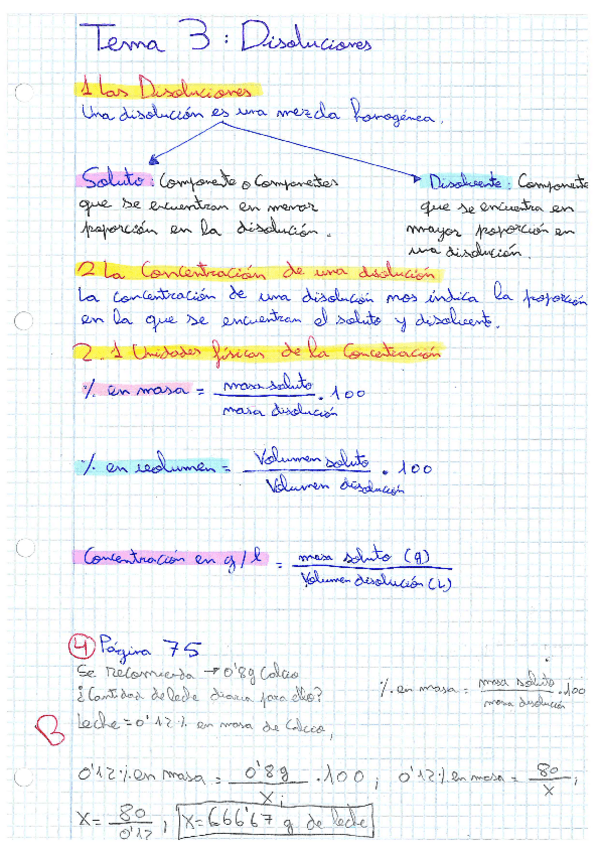 Tema 3: Disoluciones
1 Las Disoluciones
Una disolución es una mezcla homogénea.
Soluto: Componente o Componentes
que se encuentran en menor
proporción en la disolución.
Disolvente: Componente
que se encuentra en
mayor proporción en
una disolución.
2 La Concentración de una disolución
La concentración de una disolución nos indica la proporción
en la que se encuentran el soluto y disolvente.
2.1 Unidades físicas de la Concentración
% en masa = masa soluto / masa disolución · 100
% en volumen = Volumen soluto / Volumen disolución · 100
Concentración en g/l = masa soluto (g) / Volumen disolución (L)
4 Página 75
Se recomienda → 0'8g Calcio
¿Cantidad de leche diaria para ello?
Leche = 0'12% en masa de Calcio,
% en masa = masa soluto / masa disolución · 100
B
0'12% en masa = 0'8g / X · 100; 0'12% en masa = 80 / X;
X = 80 / 0'12; X = 666'67 g de leche